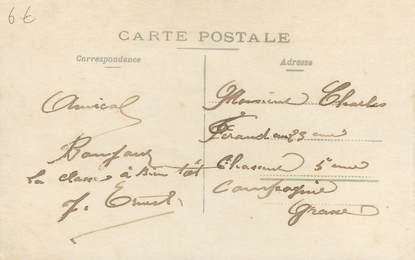 6€
CARTE POSTALE
Correspondance
Adresse
Amical
Bonjour
la classe à bien tôt
Monsieur Charles
Féraud au 23 eme
Chasseur 5 eme
Compagnie
Grasse